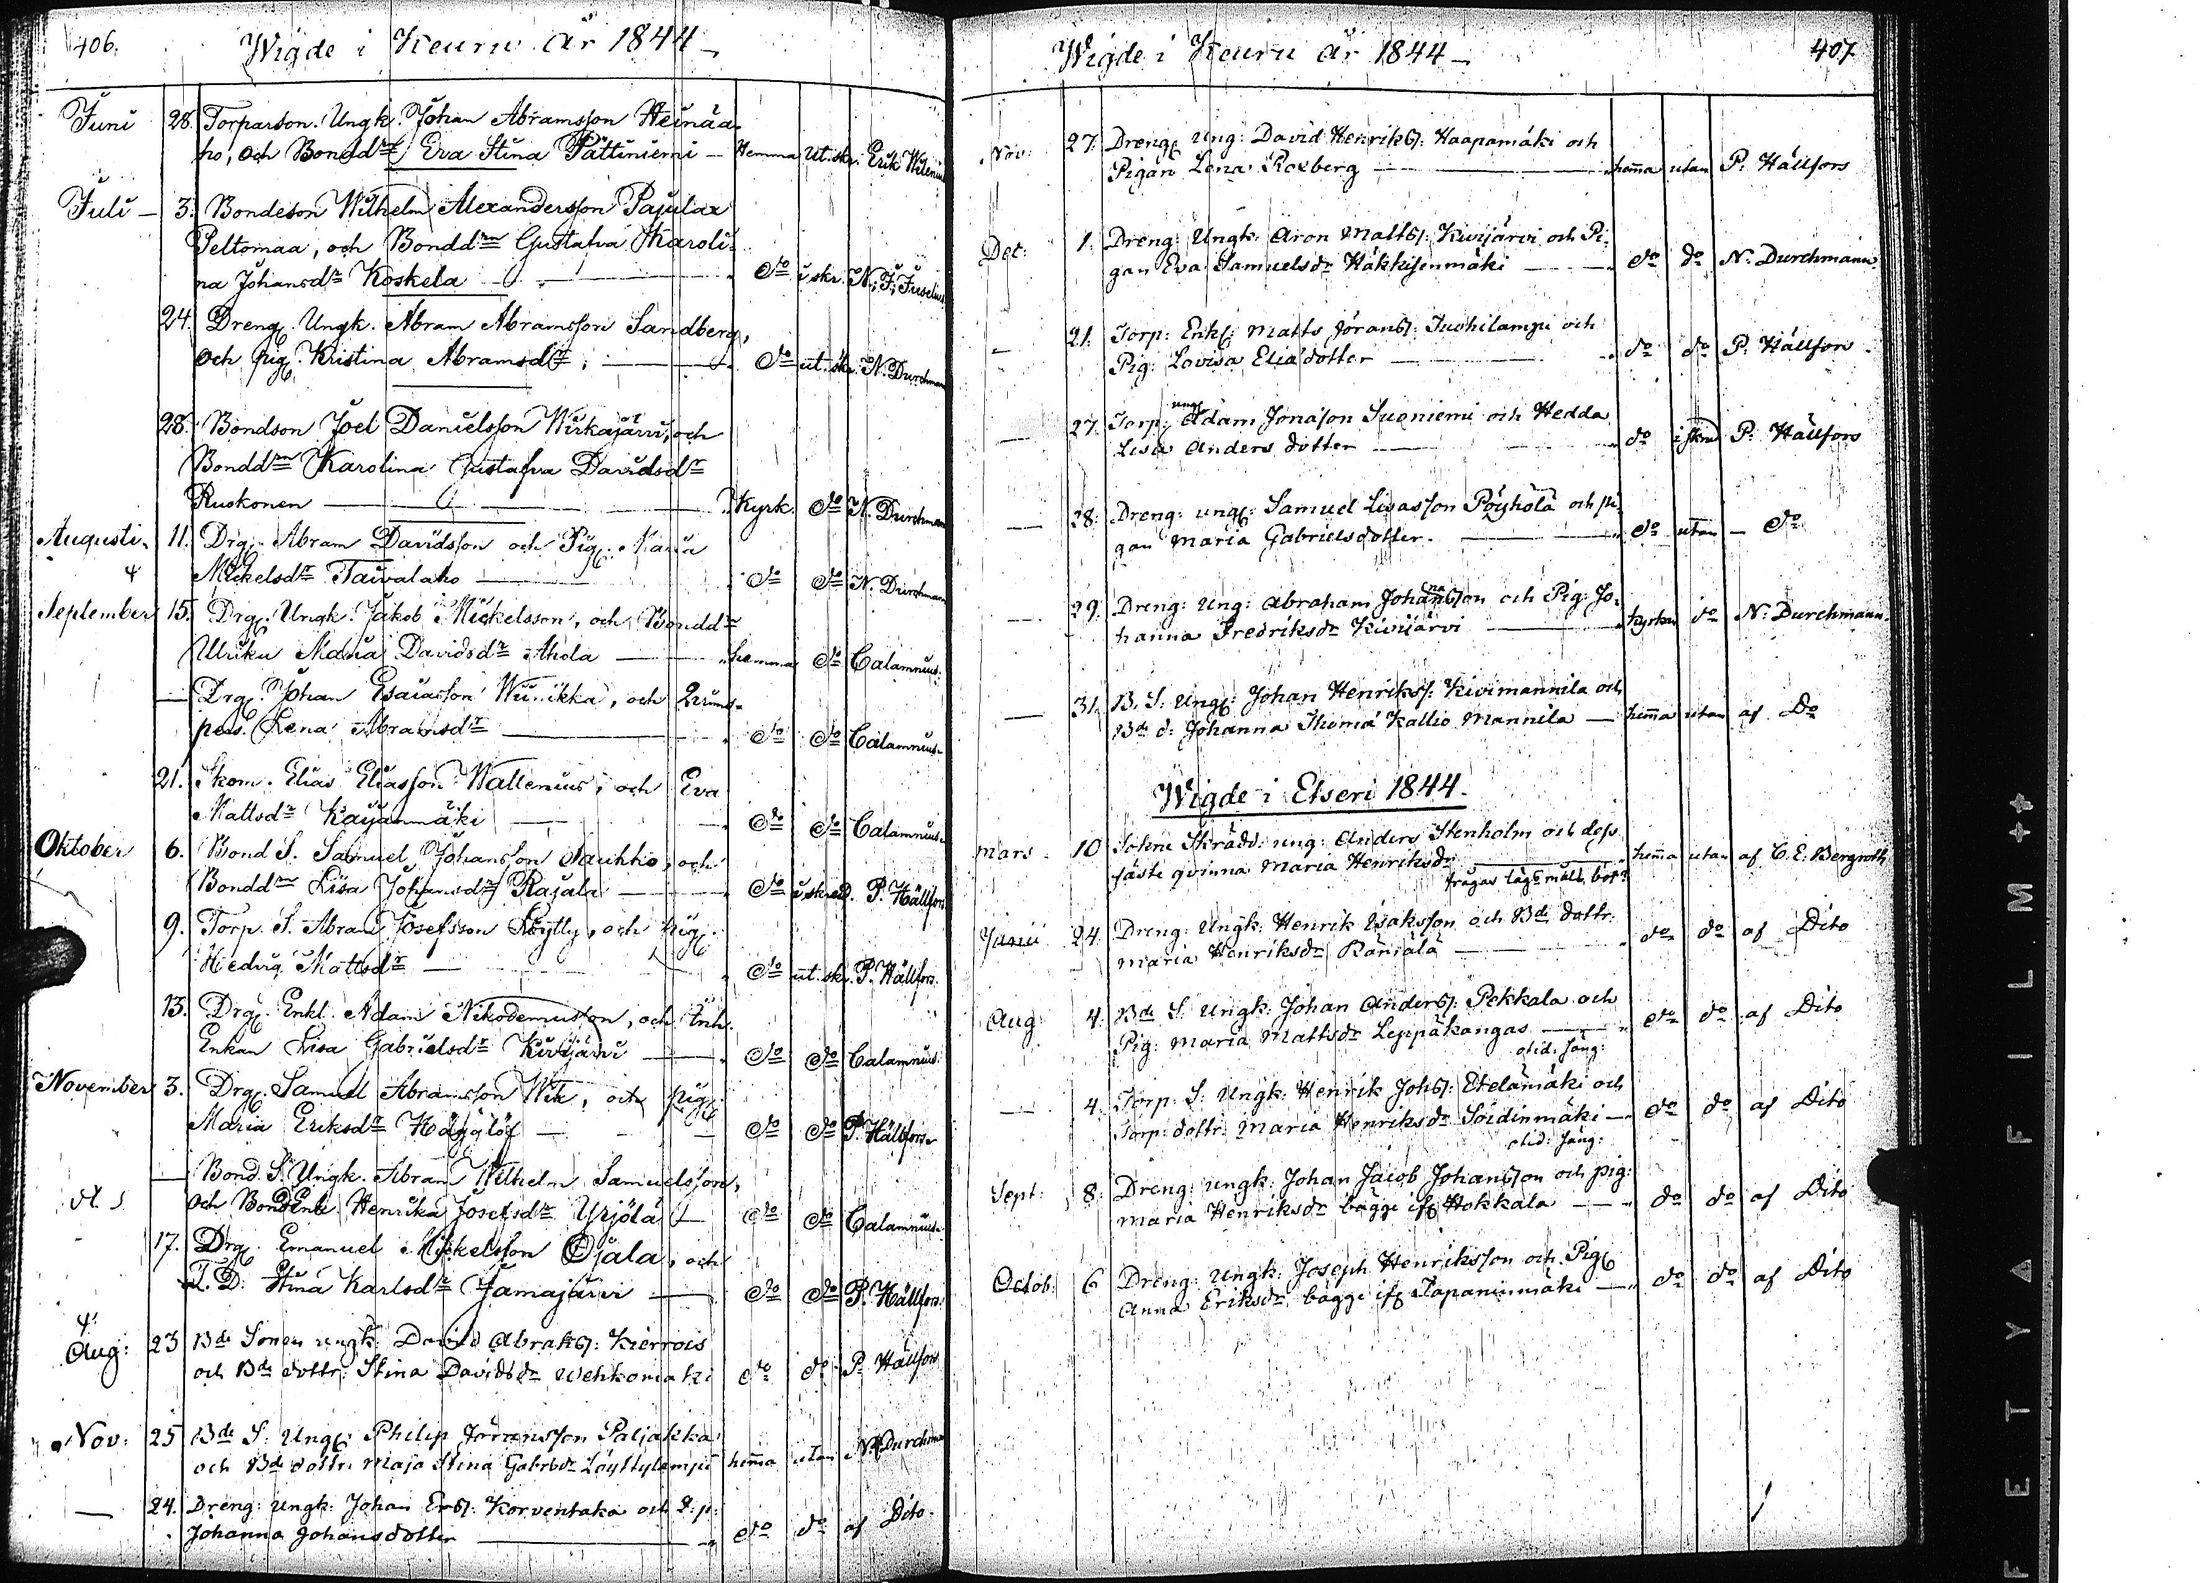 406.
Wigde i Keuru år 1844
Juni 28. Torparson. Ungk. Johan Abramsson Heinäa-
ho, och Bondd:r Eva Stina Pättiniemi — Hemma ut. skr. Erik Wilenius
Juli — 3. Bondeson Wilhelm Alexandersson Pajulax
Peltomaa, och Bondd:rn Gustafva Karoli-
na Johansd:r Koskela — d:o i skr. N. J. Fuselius
24. Dreng. Ungk. Abram Abramsson Sandberg,
och pig. Kristina Abramsd:r, — d:o ut. skr. N. Durchman
28. Bondson Joel Danielsson Wirkajärvi, och
Bondd:rn Karolina Gustafva Davidsd:r
Ruokonen — Kyrk. d:o N. Durchman
Augusti. 11. Drg. Abram Davidsson och Pig. Maria
Mickelsd:r Taivalaho — d:o d:o N. Durchman
September 15. Drg. Ungk. Jakob Mickelsson, och Bondd:r
Ulrika Maria Davidsd:r Ahola — hemma d:o Calamnius.
— Drg. Johan Esaiasson Wiinikka, och Qvinns-
pers. Lena Abramsd:r — d:o d:o Calamnius.
21. Skom. Elias Eliasson Wallenius, och Eva
Mattsd:r Kajanmäki — d:o d:o Calamnius.
Oktober 6. Bond S. Samuel Johansson Saukko, och
Bondd:rn Lisa Johansd:r Rajala — d:o i skred. P. Hällfors
9. Torp. S. Abram Josefsson Löytty, och pig.
Hedvig Mattsd:r — d:o ut. skr. P. Hällfors.
13. Drg. Enkl. Adam Nikodemusson, och Inh.
Enkan Lisa Gabrielsd:r Kivijärvi — d:o d:o Calamnius.
November 3. Drg. Samuel Abramsson Wik, och pig.
Maria Eriksd:r Hägglöf — d:o d:o P. Hällfors.
— Bond. S. Ungk. Abram Wilhelm Samuelsson,
och BondEnk. Henrika Josefsd:r Yrjölä — d:o d:o Calamnius.
17. Drg. Emanuel Mickelsson Ojala, och
T. D. Stina Karlsd:r Jamajärvi — d:o d:o P. Hällfors.
Aug: 23 B:de Sonen ungk: David Abrahs: Kierrois
och B:de dottr: Stina Davidsd:r Wehkomäki d:o d:o P. Hällfors
Nov: 25 B:de S: Ung: Philip Göransson Paljakka
och B:de dottr: Maja Stina Gabrsd:r Löyttylampi hema utan N. Durchman
— 24. Dreng: ungk: Johan Ers: Korventaka och Q:p:
Johanna Johansdotter — d:o d:o af Dito.
Wigde i Keuru år 1844 —
407
Nov: 27. Dreng Ung: David Henriks: Haapamäki och
Pigan Lena Roxberg — hema utan P. Hällfors
Dec: 1. Dreng: Ungk: Aron Matts: Kivijärvi och Pi-
gan Eva Samuelsd:r Häkkisenmäki — d:o d:o N. Durchmann
— 21. Torp: Enkl: Matts Görans: Suohilampi och
Pig: Lovisa Eliædotter — d:o d:o P. Hällfors.
— 27. Torp: ung: Adam Jonason Suoniemi och Hedda
Lisa Anders dotter — d:o i skred P. Hällfors
— 28. Dreng: ung: Samuel Lisasson Pöyhölä och pi-
gan Maria Gabrielsdotter. — d:o utan — d:o
— 29. Dreng: Ung: Abraham Johansson och Pig: Jo-
hanna Fredriksd:r Kivijärvi — kyrkan d:o N. Durchmann.
— 31. B. S. Ung: Johan Henriks: Kivimannila och
B:de d: Johanna Thomæ Kallio Mannila — hema utan af D:o
Wigde i Etseri 1844.
Mars 10 Sokne Skrädd: ung: Anders Stenholm och dess
fäste qvinna Maria Henriksd:r — hema utan af C. E. Bergroth
Junii 24. Dreng: Ungk: Henrik Isaksson och B:de dottr:
Maria Henriksd:r Ränsälä — d:o d:o af Dito
Aug: 4. B:de S. Ungk: Johan Anders: Pekkala och
Pig: Maria Mattsd:r Leppäkangas — d:o d:o af Dito
— 4. Torp: S: Ungk: Henrik Johs: Etelämäki och
Torp: dottr: Maria Henriksd:r Soidinmäki — d:o d:o af Dito
Sept: 8. Dreng: ungk: Johan Jacob Johansson och pig:
Maria Henriksd:r bägge ifr Hokkala — d:o d:o af Dito
Octob: 6 Dreng: Ungk: Joseph Henriksson och Pig
Anna Eriksd:r bägge ifr Tapaninmäki — d:o d:o af Dito
FETYAFILM ++